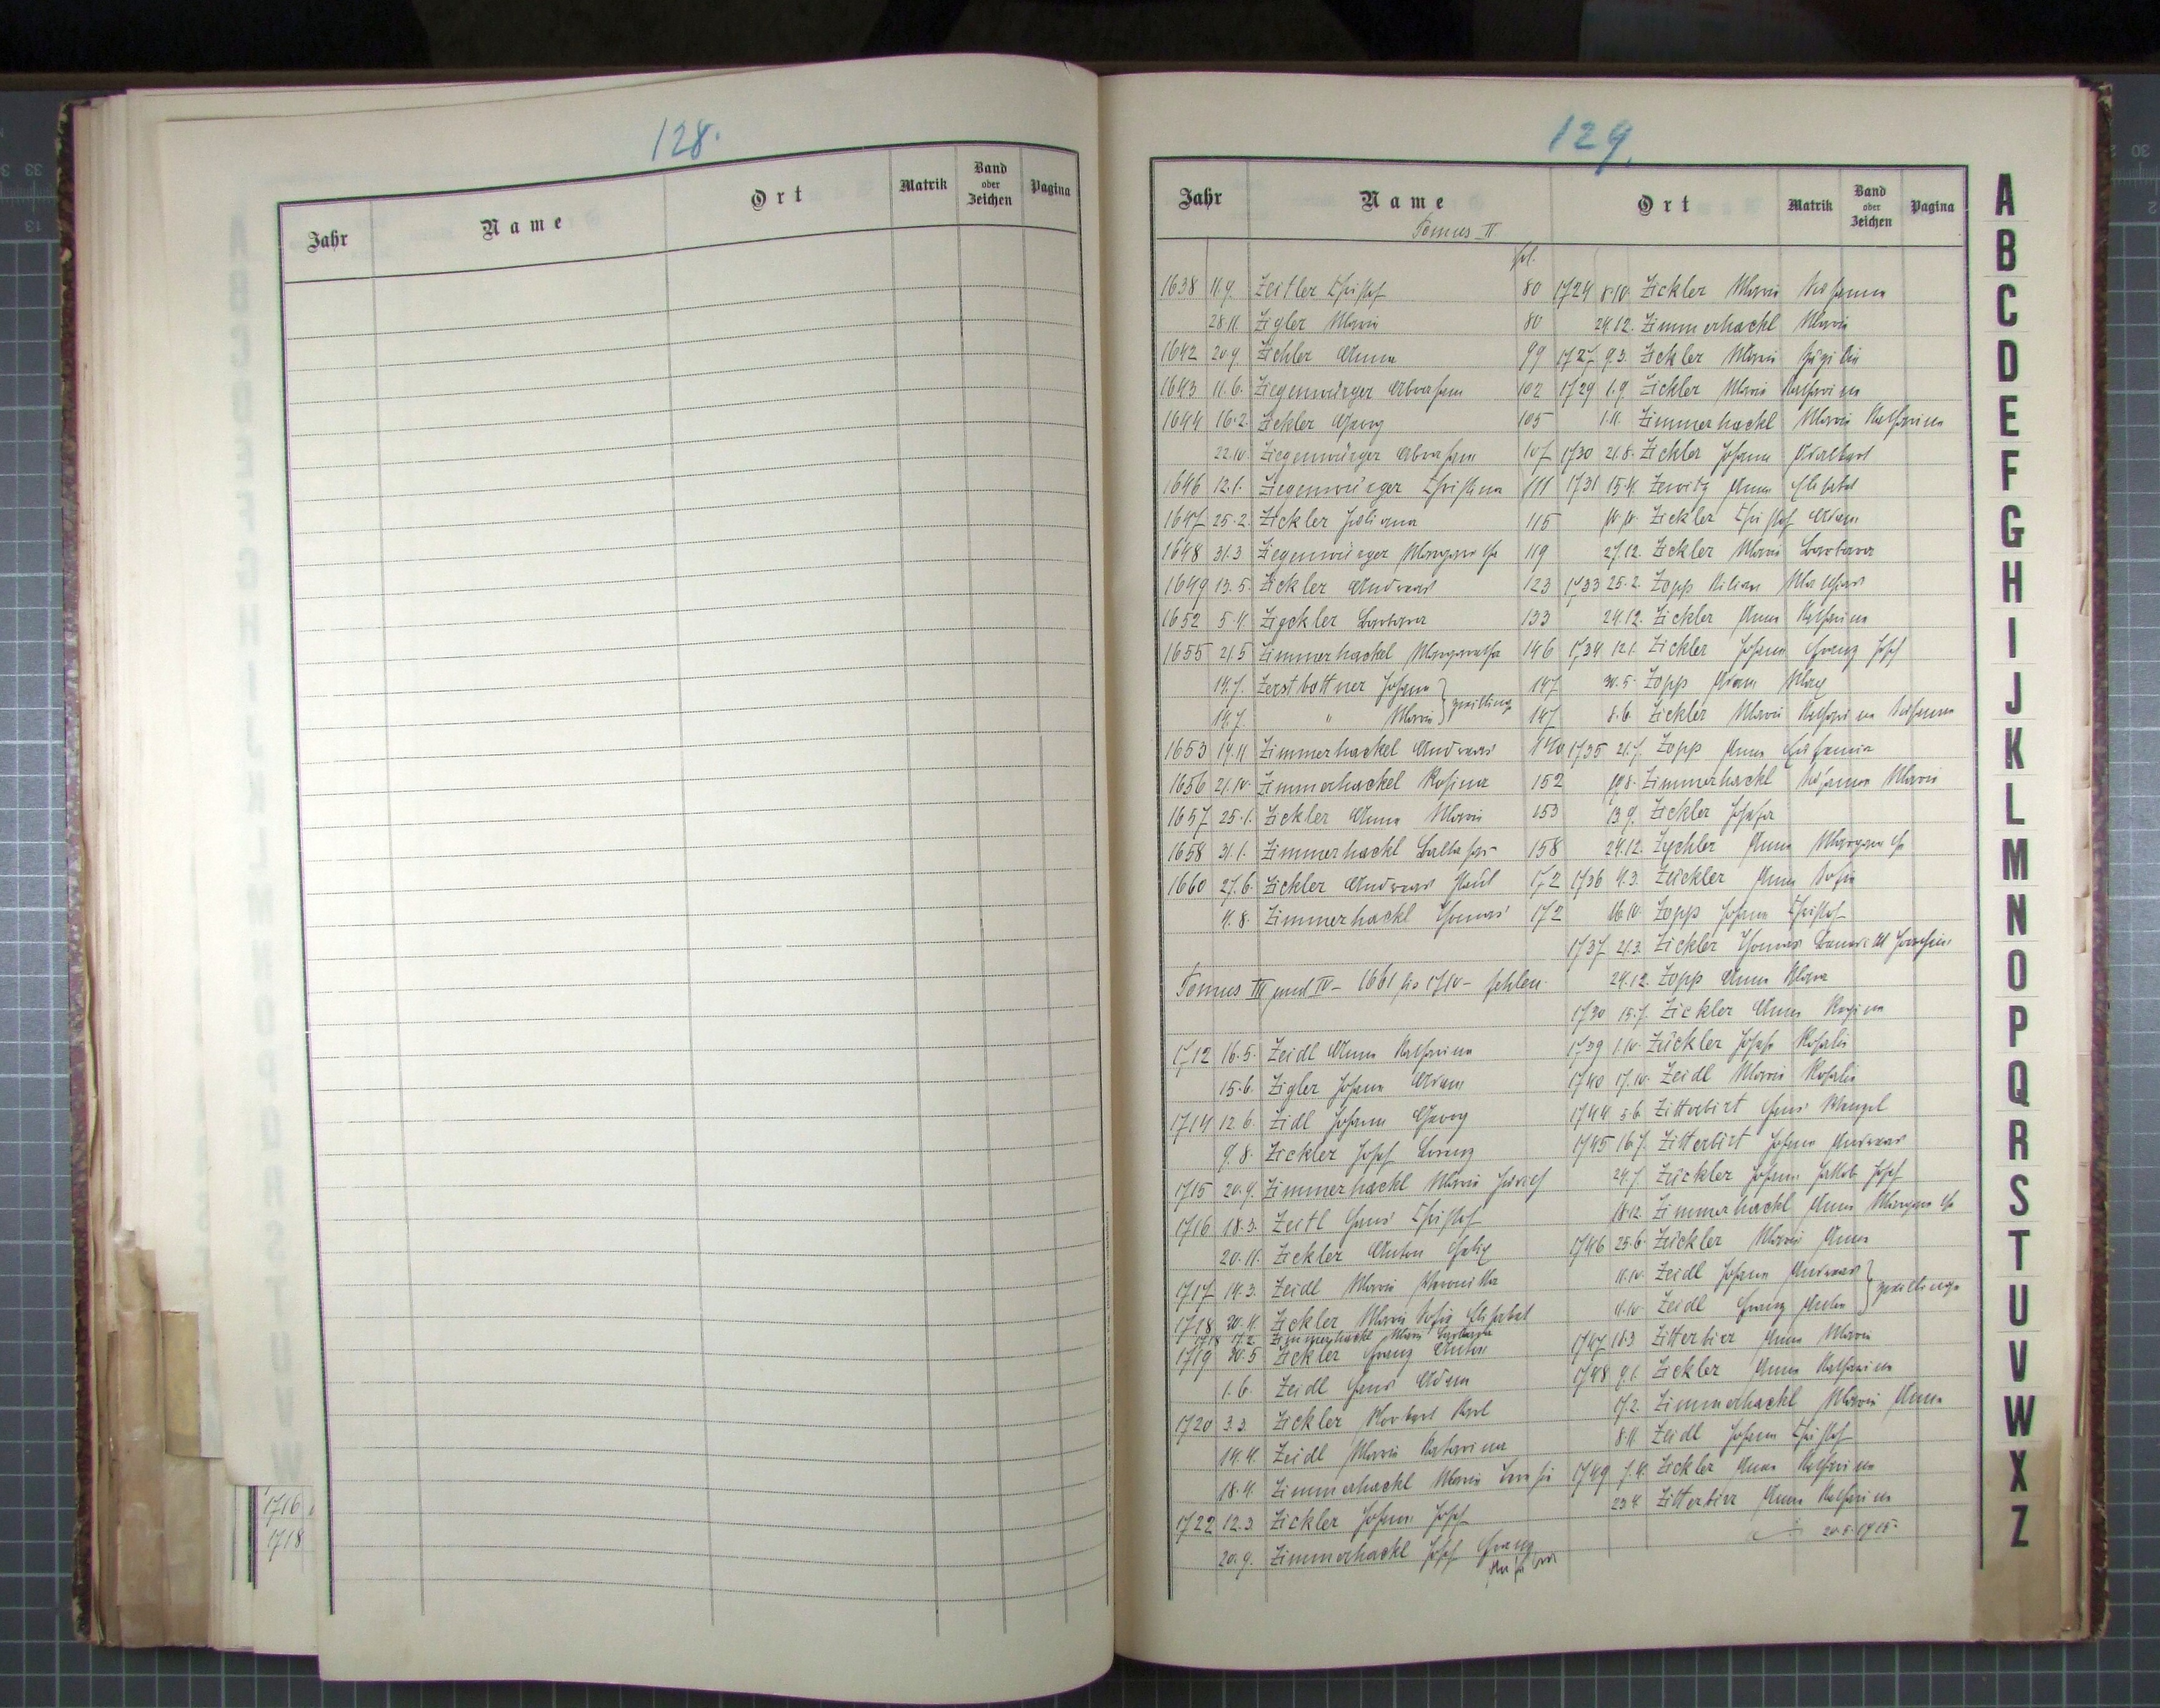 128.
Jahr Name Ort Matrik Band oder Zeichen Pagina
1716
1718
129.
Jahr Name Ort Matrik Band oder Zeichen Pagina
Tomus II
fol.
1638 11.9. Zeitler Christof 80
28.11. Zigler Maria 80
1642 20.9. Zichler Anna 99
1643 11.6. Ziegenwürger Abraham 102
1644 16.2. Zickler Georg 105
22.10. Ziegenwürger Abraham 107
1646 12.1. Ziegenwürger Christina 111
1647 25.2. Zickler Juliana 115
1648 31.3. Ziegenwürger Margaretha 119
1649 13.5. Zickler Andreas 123
1652 5.4. Zigckler Barbara 133
1655 21.5. Zimmerhackel Margaretha 146
14.7. Zerstbottner Johann } Zwillinge 147
14.7. " Maria 147
1653 19.11. Zimmerhackel Andreas 140
1656 21.10. Zimmerhackel Rosina 152
1657 25.1. Zickler Anna Maria 153
1658 31.1. Zimmerhackl Balthasar 158
1660 27.6. Zickler Andreas Paul 172
4.8. Zimmerhackl Thomas 172
Tomus III und IV - 1661 bis 1710 - fehlen.
1712 16.5. Zeidl Anna Katharina
15.6. Zigler Johann Adam
1714 12.6. Zidl Johann Georg
9.8. Zickler Josef Lorenz
1715 20.9. Zimmerhackl Maria
1716 18.3. Zeitl Hans Christof
20.11. Zickler Anton Felix
1717 14.3. Zeidl Maria Veronika
1718 20.11. Zickler Maria Sofie Elisabet
1718 17.2. Zimmerhackl Maria Barbara
1719 30.5. Zickler Franz Anton
1.6. Zeidl Hans Adam
1720 3.3. Zickler Norbert Karl
14.4. Zeidl Maria Katarina
18.4. Zimmerhackl Maria Theresia
1722 12.3. Zickler Johann Josef
20.9. Zimmerhackl Josef Franz
1724 8.10. Zickler Maria Susanna
24.12. Zimmerhackl Maria
1727 9.3. Zickler Maria
1729 1.9. Zickler Maria Katharina
1.11. Zimmerhackl Maria Katharina
1730 21.8. Zickler Johann Adalbert
1731 15.4. Zewitz Anna Elisabet
10.10. Zickler Christof Adam
27.12. Zickler Maria Barbara
1733 25.2. Zopp Kilian Mathias
24.12. Zickler Anna Katharina
1734 12.1. Zickler Johann Franz Josef
30.5. Zopp Adam Max
8.6. Zickler Maria Katharina Susanna
1735 21.7. Zopp Anna
19.8. Zimmerhackl Susanna Maria
13.9. Zickler Josefa
24.12. Zychler Anna Margaretha
1736 4.3. Zückler Anna Sofia
16.10. Zopp Johann Christof
1737 21.3. Zickler Thomas Benedikt Joachim
24.12. Zopp Anna Klara
1730 15.7. Zickler Anna Regina
1739 1.10. Zückler Josefa Rosalia
1740 17.10. Zeidl Maria Rosalia
1744 5.6. Zitterbirt Hans Wenzel
1745 16.7. Zitterbirt Johann Andreas
24.7. Zückler Johann Jakob Josef
18.12. Zimmerhackl Anna Margaretha
1746 25.6. Zückler Maria Anna
11.10. Zeidl Johann Andreas } Zwillinge
11.10. Zeidl Franz Anton
1747 18.3. Zitterbier Anna Maria
1748 9.1. Zickler Anna Katharina
17.2. Zimmerhackl Maria Anna
8.11. Zeidl Johann Christof
1749 7.4. Zickler Anna Katharina
23.4. Zitterbier Anna Katharina
20.5.1915.
A
B
C
D
E
F
G
H
I
J
K
L
M
N
O
P
Q
R
S
T
U
V
W
X
Z